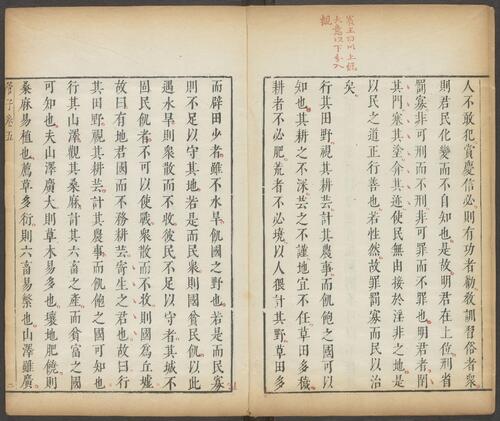 賓王曰以上總
大意以下分八
觀
人不敢犯賞慶信必則有功者勸教訓習俗者衆
則君民化變而不自知也是故明君在上位刑省
罰寡非可刑而不刑非可罪而不罪也明君者閉
其門塞其塗弇其迹使民無由接於淫非之地是
以民之道正行善也若性然故罪罰寡而民以治
矣
行其田野視其耕芸計其農事而飢飽之國可以
知也其耕之不深芸之不謹地宜不任草田多穢
耕者不必肥荒者不必墝以人猥計其野草田多
而辟田少者雖不水旱飢國之野也若是而民寡
則不足以守其地若是而民衆則國貧民飢以此
遇水旱則衆散而不收彼民不足以守者其城不
固民飢者不可以使戰衆散而不收則國為丘墟
故曰有地君國而不務耕芸寄生之君也故曰行
其田野視其耕芸計其農事而飢飽之國可知也
行其山澤觀其桑麻計其六畜之產而貧富之國
可知也夫山澤廣大則草木易多也壤地肥饒則
桑麻易植也薦草多衍則六畜易繁也山澤雖廣
管子卷五